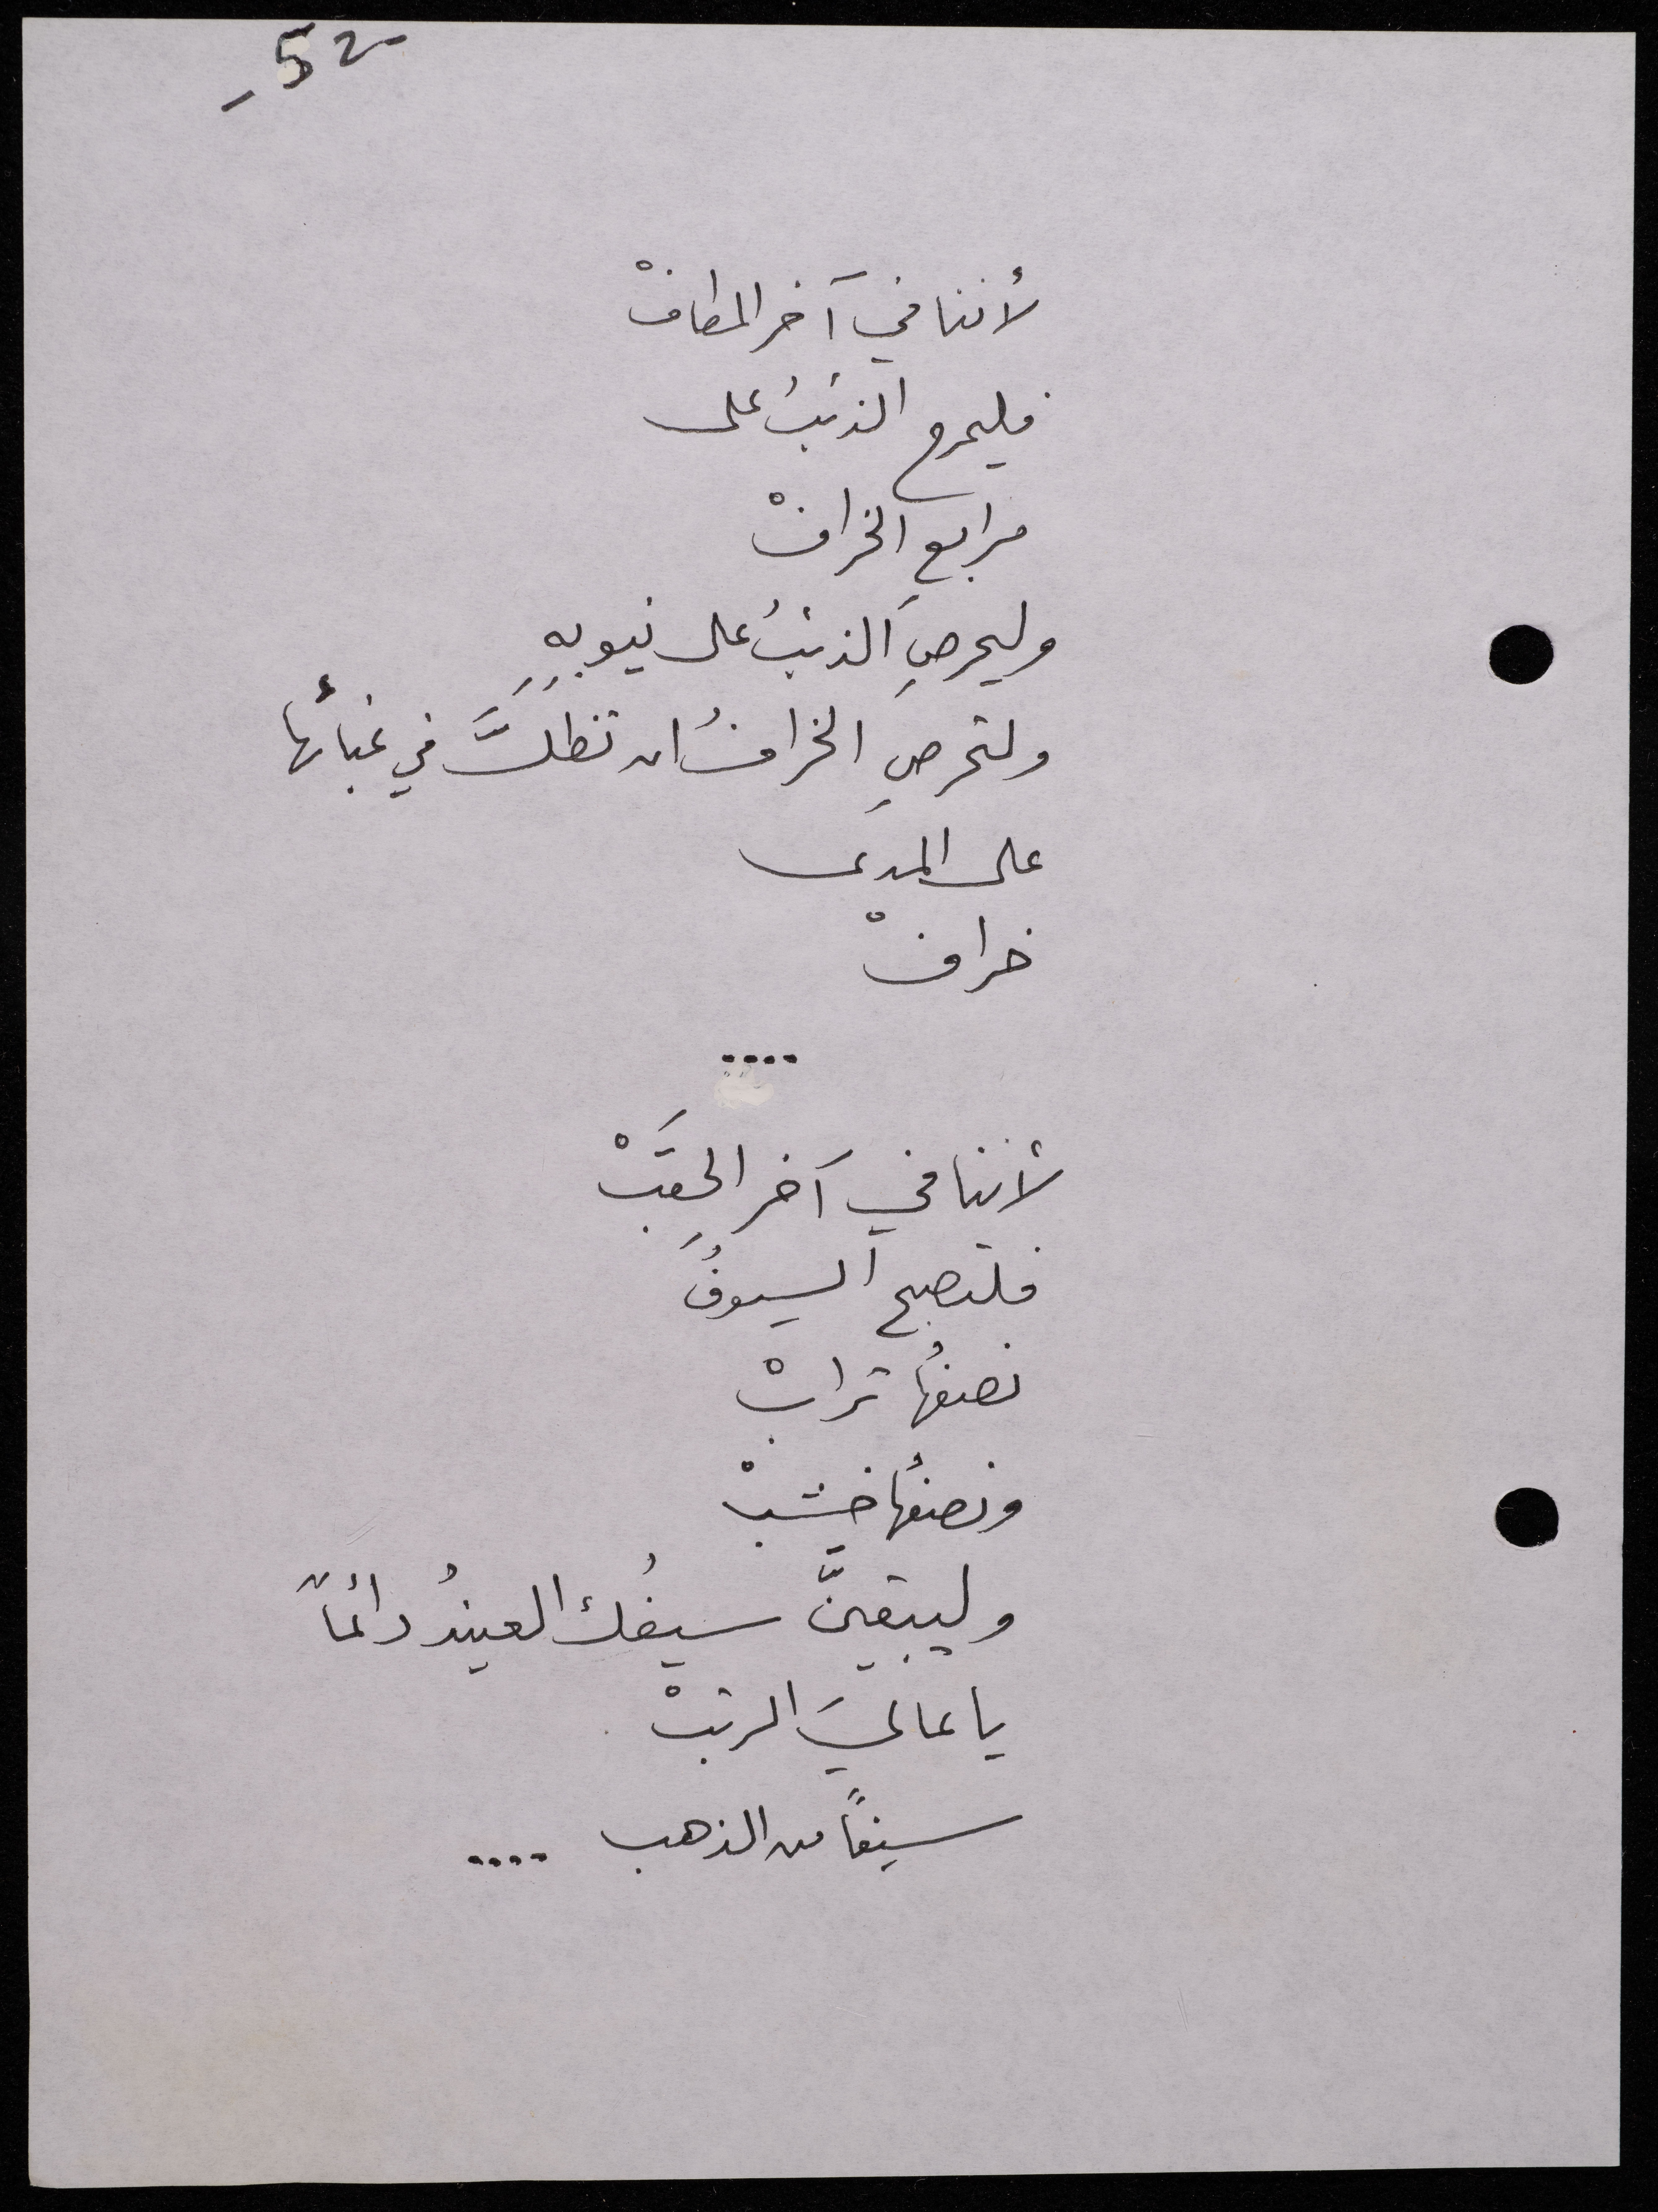 - 52 -
لأننا في آخر المطافْ
فليمرح الذئبُ على
مرابعِ الخرافْ
وليحرصِ الذئبُ على نيوبِهِ
ولتحرصِ الخرافُ ان تظلَّ في غبائها
على المدى
خرافْ
....
لأننا في آخرِ الحِقَبْ
فلتصبح السيوفُ
نصفُها ترابْ
ونصفُها خشبْ
وليبقينَّ سيفُك العينُد دائماً
يا عاليَ الرتبْ
سيفاً من الذهب ....